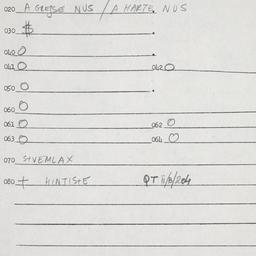 020 A GREJSE NUS / A HARTE NUS
030 $
040 O
041 O 042 O
050 O
060 O
061 O 062 O
063 O 064 O
070 STVEMLAX
080 + HINTISTE QT